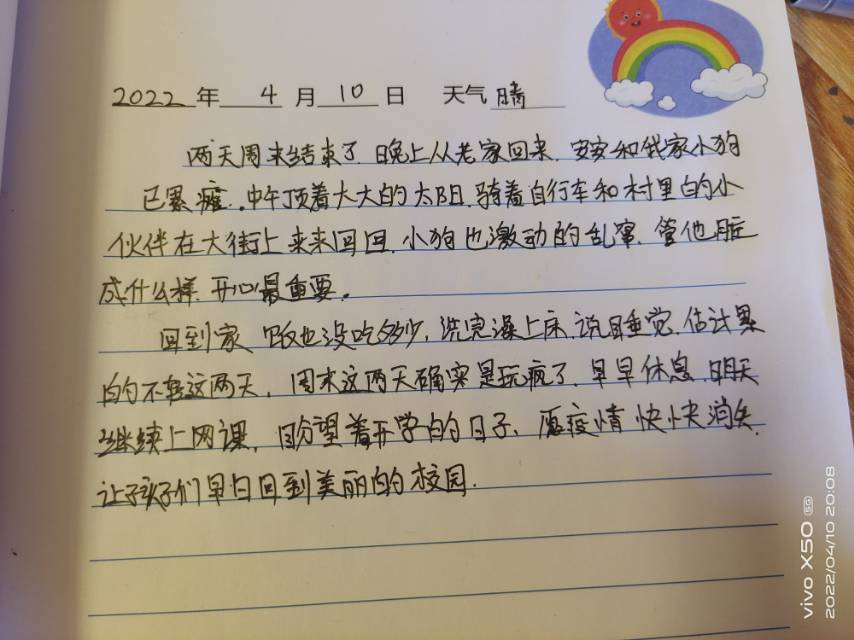 2022年 4月10日 天气晴
两天周末结束了.晚上从老家回来.安安和我家小狗
已累瘫.中午顶着大大的太阳.骑着自行车和村里的小
伙伴在大街上来来回回.小狗也激动的乱窜.管他脏
成什么样.开心最重要。
回到家 饭也没吃多少,洗完澡上床.说睡觉.估计累
的不轻这两天.周末这两天确实是玩疯了.早早休息.明天
继续上网课,盼望着开学的日子、愿疫情快快消失.
让孩子们早日回到美丽的校园.
vivo X50 5G
2022/04/10 20:08